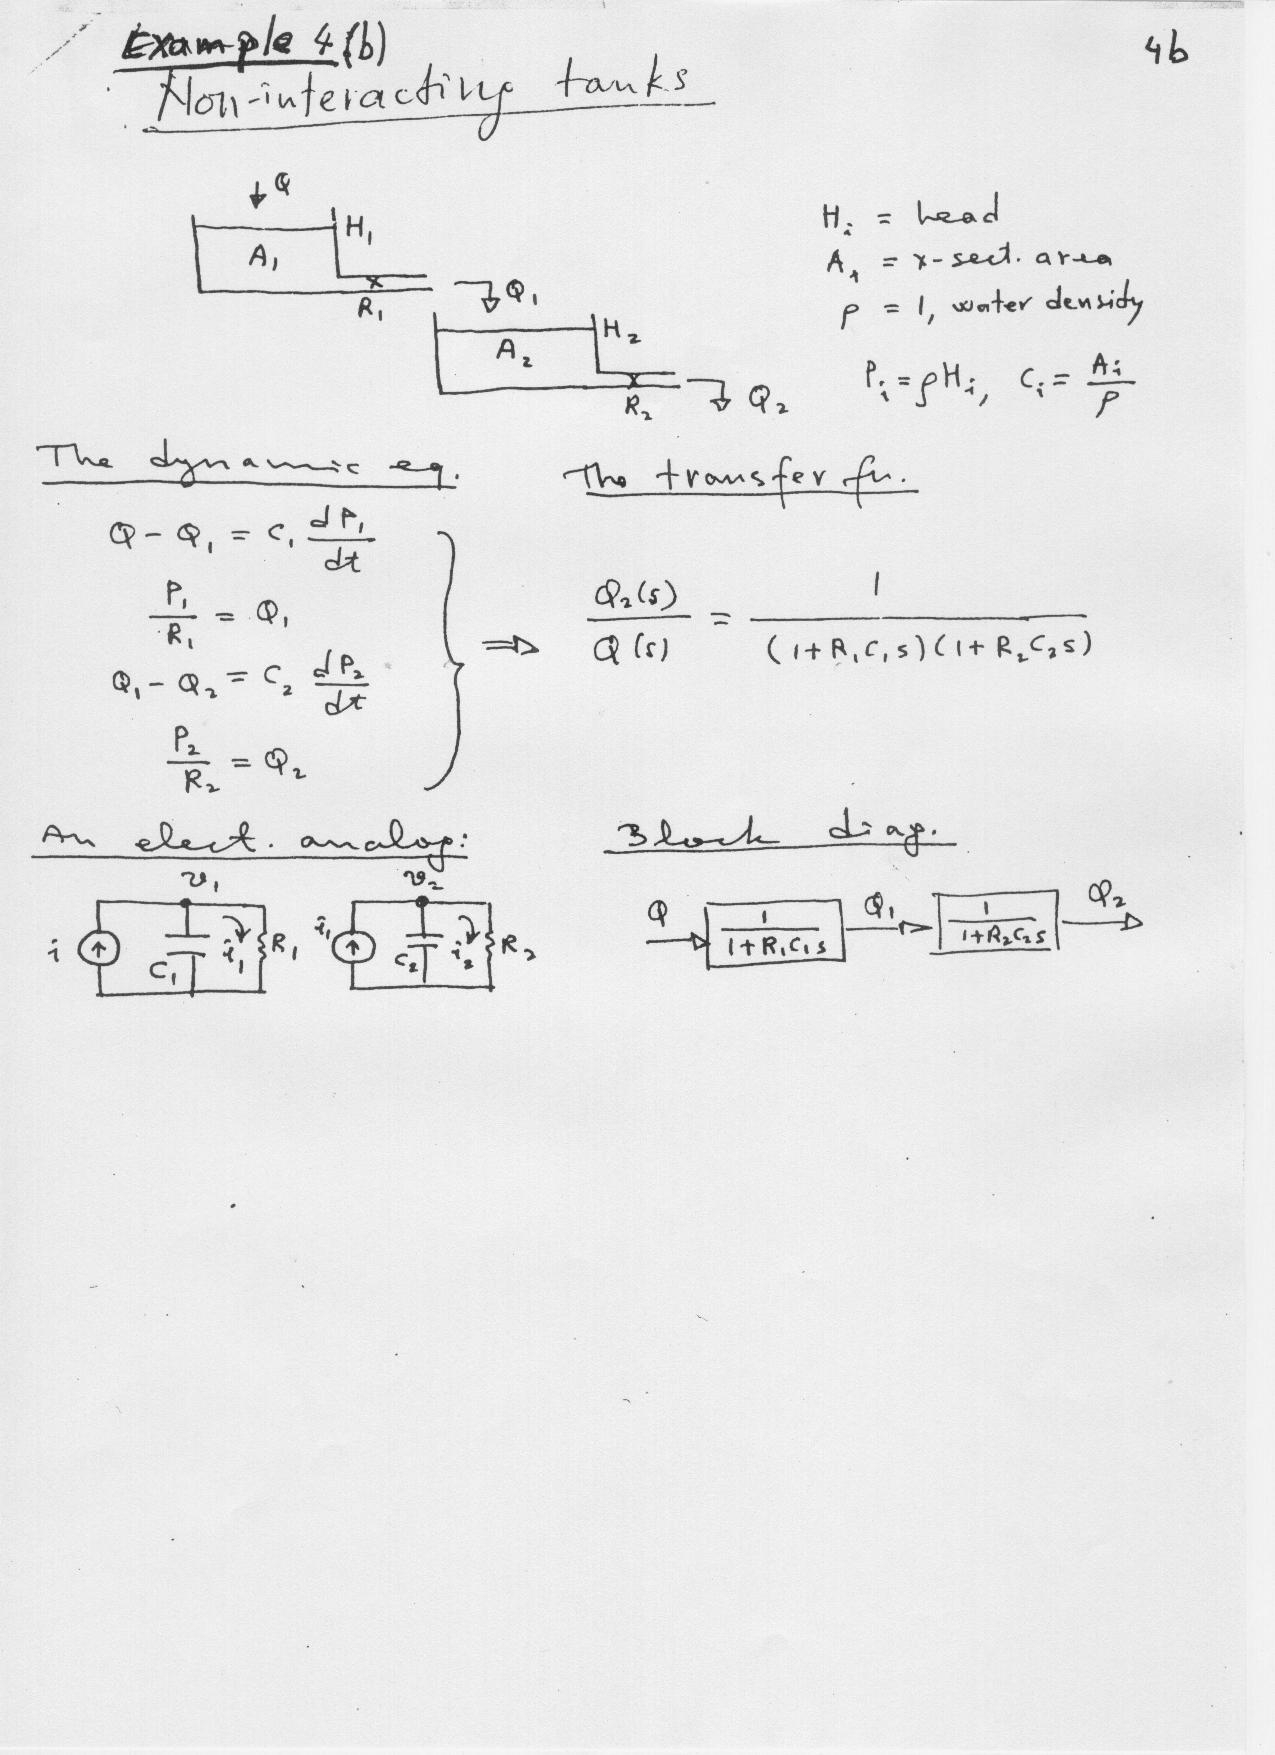 Example 4(b)
4b
Non-interacting tanks
Q
H₁
A₁
R₁
Q₁
H₂
A₂
R₂
Q₂
Hᵢ = head
Aᵢ = x-sect. area
ρ = 1, water density
Pᵢ = ρHᵢ, Cᵢ = Aᵢ/ρ
The dynamic eq.
The transfer fn.
Q - Q₁ = C₁ dP₁/dt
P₁/R₁ = Q₁
Q₁ - Q₂ = C₂ dP₂/dt
P₂/R₂ = Q₂
⇒ Q₂(s)/Q(s) = 1/((1+R₁C₁s)(1+R₂C₂s))
An elect. analog:
v₁
i
C₁
i₁
R₁
v₂
i₁
C₂
i₂
R₂
Block diag.
Q
1/(1+R₁C₁s)
Q₁
1/(1+R₂C₂s)
Q₂